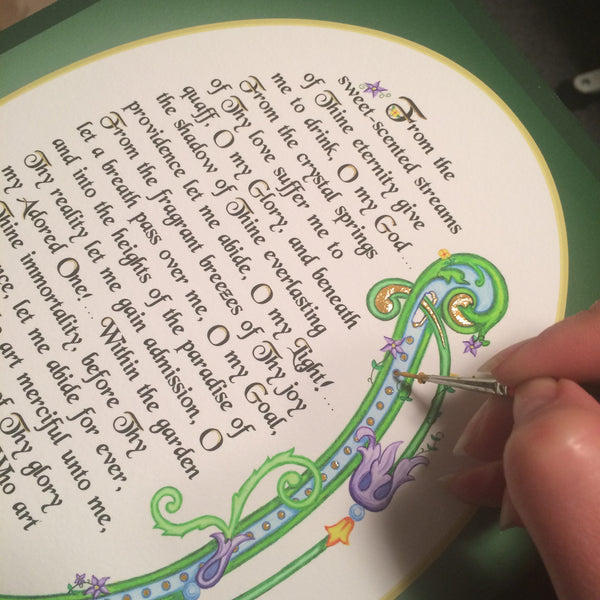 From the
sweet-scented streams
of Thine eternity give
me to drink, O my God...
From the crystal springs
of Thy love suffer me to
quaff, O my Glory, and beneath
the shadow of Thine everlasting
providence let me abide, O my Light!...
From the fragrant breezes of Thy joy
let a breath pass over me, O my Goal,
and into the heights of the paradise of
Thy reality let me gain admission, O
my Adored One!... Within the garden
Thine immortality, before Thy
let me abide for ever,
art merciful unto me,
of Thy glory
Who art